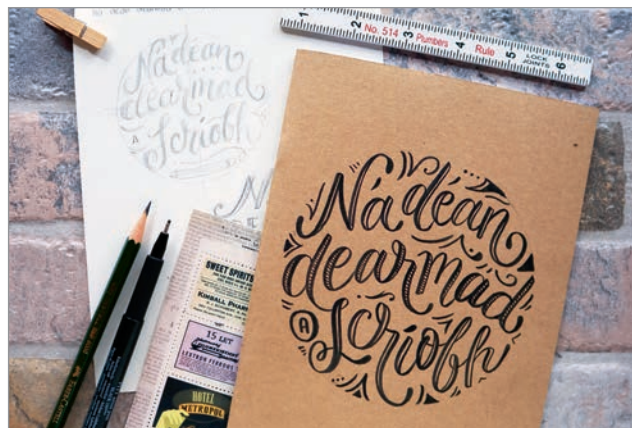 1 2 No. 514 3 Plumbers 4 Rule 5 LOCK JOINTS 6
Ná déan
dearmad
A Scríobh
Ná déan
dearmad
A Scríobh
SWEET SPIRITS
KIMBALL PHAR
15 LET
HOTEL
METROPOL